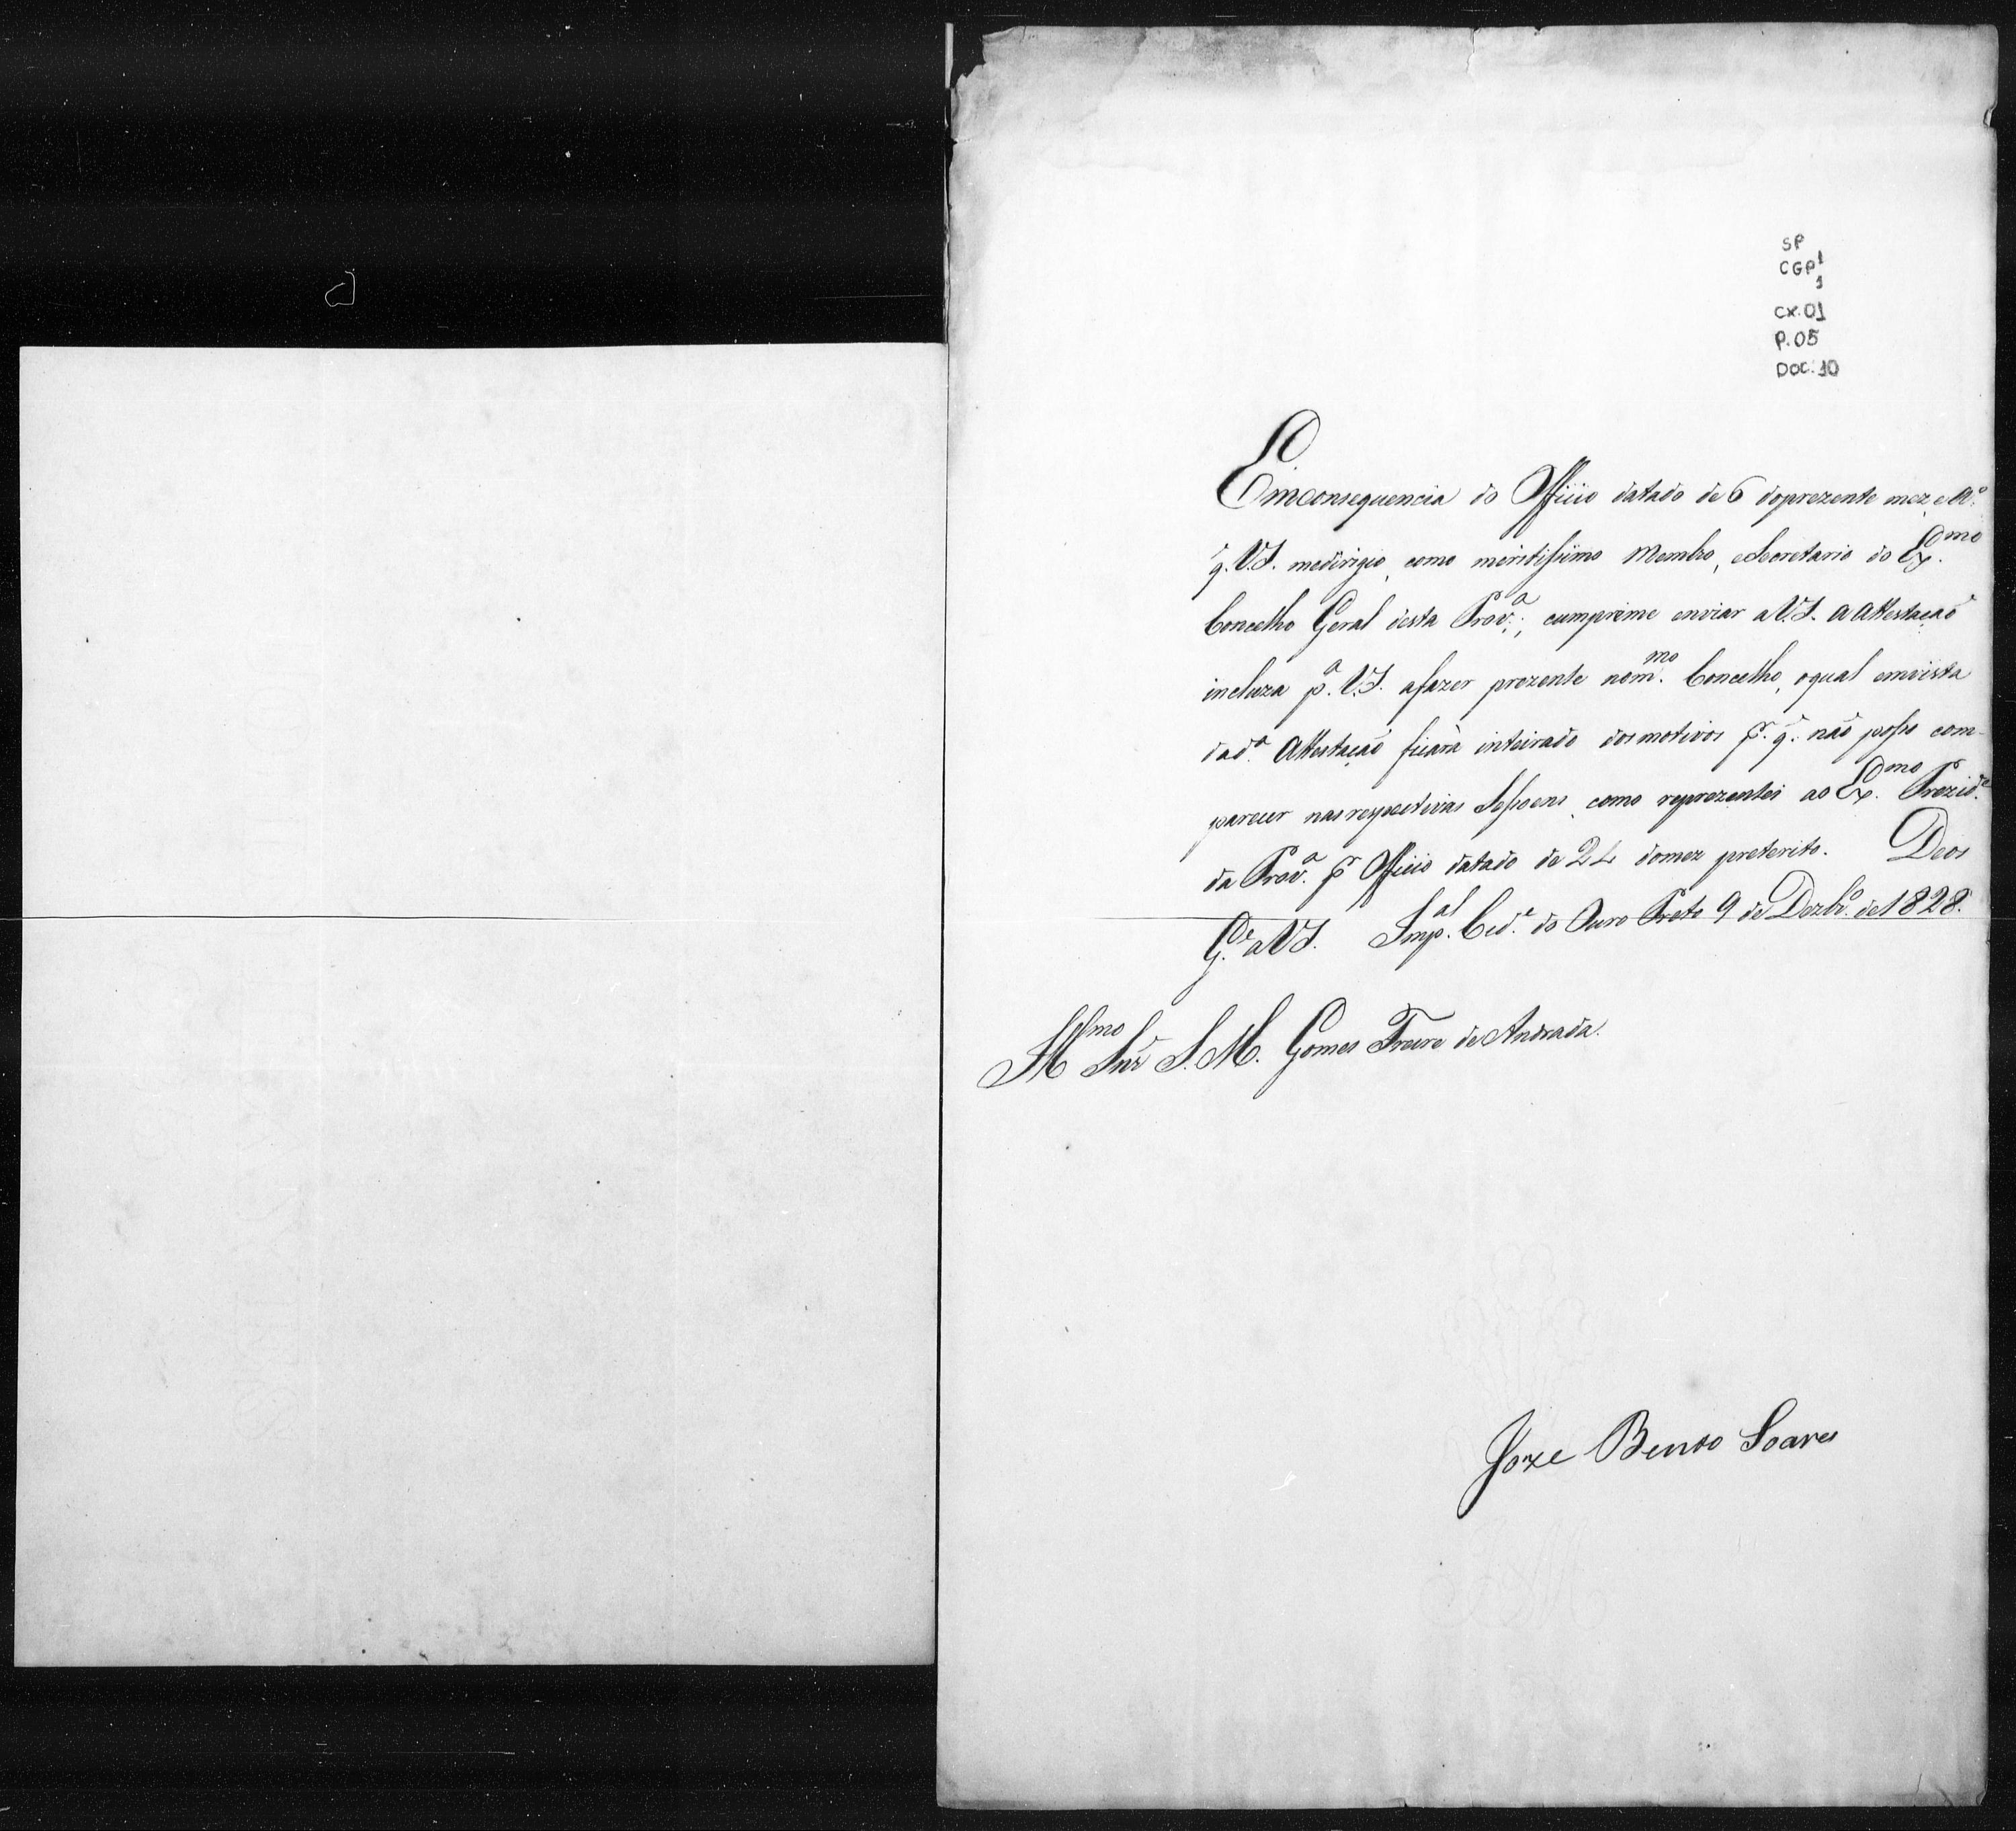 SP
CGP¹
1
CX.01
P.05
DOC.10
Em consequencia do Officio datado de 6 do prezente mez, e A.º
q. V.S. me dirigio, como meritissimo Membro, e Secretario do Ex.mo
Concelho Geral desta Prov.ª; cumpri me enviar a V.S. a Attestação
incluza p.ª V.S. a fazer prezente no m.mo Concelho, o qual em vista
da d.ª Attestação ficará inteirado dos motivos p.r q. não posso com-
parecer nas respectivas Sessoens, como reprezentei ao Ex.mo Prezid.e
da Prov.ª p.r Officio datado de 24 do mez preterito. Deos
G.de a V.S. Imp.al Cid.e do Ouro Preto 9 de Dezbr.º de 1828.
Ill.mo Snr. S. M. Gomes Freire de Andrada.
Joze Bento Soares